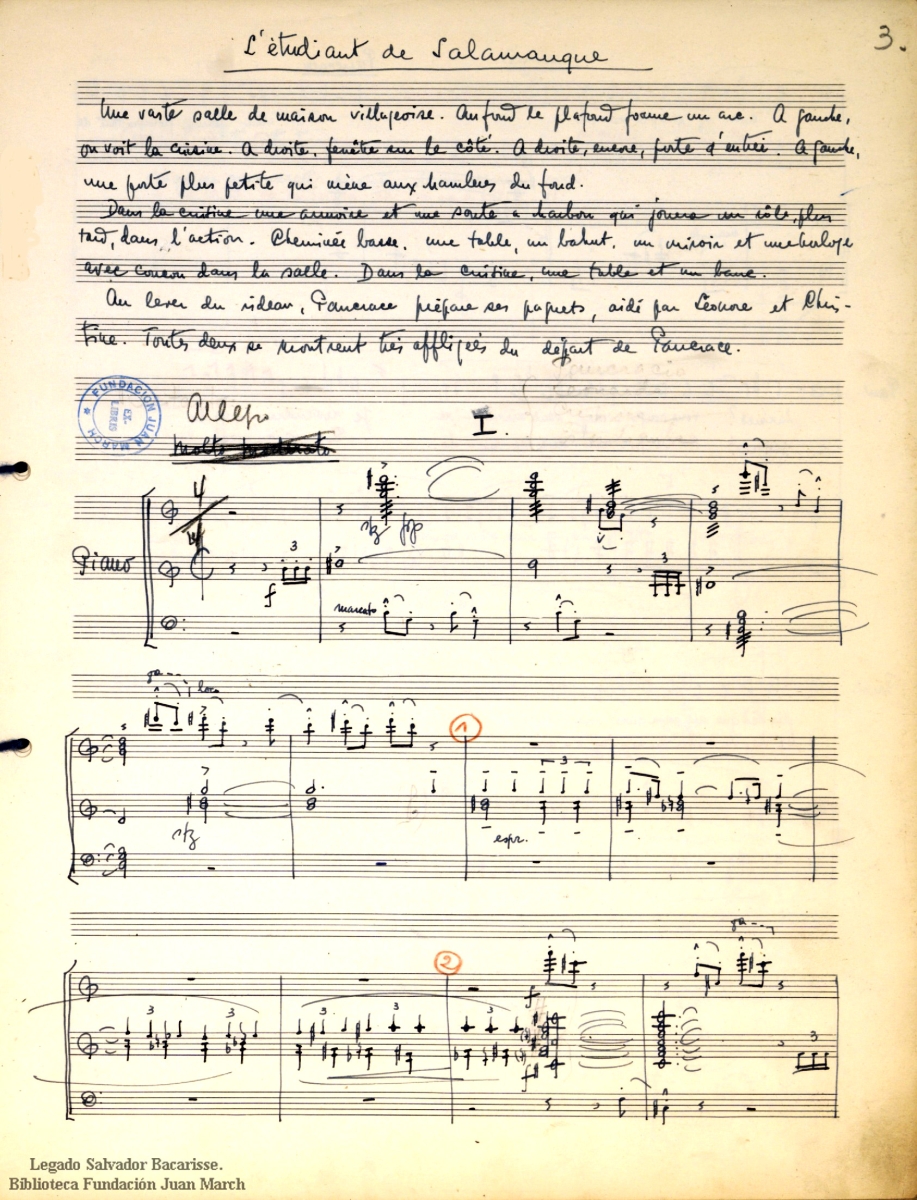 3.
L'étudiant de Salamanque
Une vaste salle de maison villageoise. Au fond le plafond forme un arc. A gauche,
on voit la cuisine. A droite, fenêtre sur le côté. A droite, encore, porte d'entrée. A gauche,
une porte plus petite qui mène aux chambres du fond.
Dans la cuisine une armoire et une soute a charbon qui jouera un rôle, plus
tard, dans l'action. Cheminée basse, une table, un bahut, un miroir et une horloge
avec coucou dans la salle. Dans la cuisine, une table et un banc.
Au lever du rideau, Pancrace prépare ses paquets, aidé par Léonore et Chris-
tine. Toutes deux se montrent très affligées du départ de Pancrace.
FUNDACIÓN JUAN MARCH
EX-LIBRIS
Allegro
Molto moderato
I.
Piano
3
f
sfz
marcato
3
8a
loco
sfz
1
3
espr.
2
8a
f
3
3
3
3
3
ff
3
Legado Salvador Bacarisse.
Biblioteca Fundación Juan March